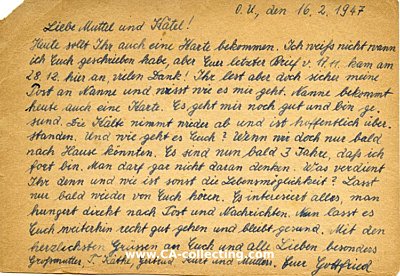 O.U., den 16.2.1947
Liebe Muttel und Kätel!
Heute sollt Ihr auch eine Karte bekommen. Ich weiß nicht wann
ich Euch geschrieben habe, aber Euer letzter Brief v. 17.11. kam am
28.12. hier an, vielen Dank! Ihr lest aber doch sicher meine
Post an Nanne und wisst wie es mir geht. Nanne bekommt
heute auch eine Karte. Es geht mir noch gut und bin ge-
sund. Die Kälte nimmt wieder ab und ist hoffentlich über-
standen. Und wie geht es Euch? Wenn wir doch nur bald
nach Hause könnten. Es sind nun bald 3 Jahre, daß ich
fort bin. Man darf gar nicht daran denken. Was verdient
Ihr denn und wie ist sonst die Lebensmöglichkeit? Lasst
nur bald wieder von Euch hören. Es interesiert alles, man
hungert direkt nach Post und Nachrichten. Nun lasst es
Euch weiterhin recht gut gehen und bleibt gesund. Mit den
herzlichsten Grüssen an Euch und alle Lieben besonders
Großmutter, T. Käthe, Gertrud, Kurt und Euer Gottfried
www.CA-collecting.com